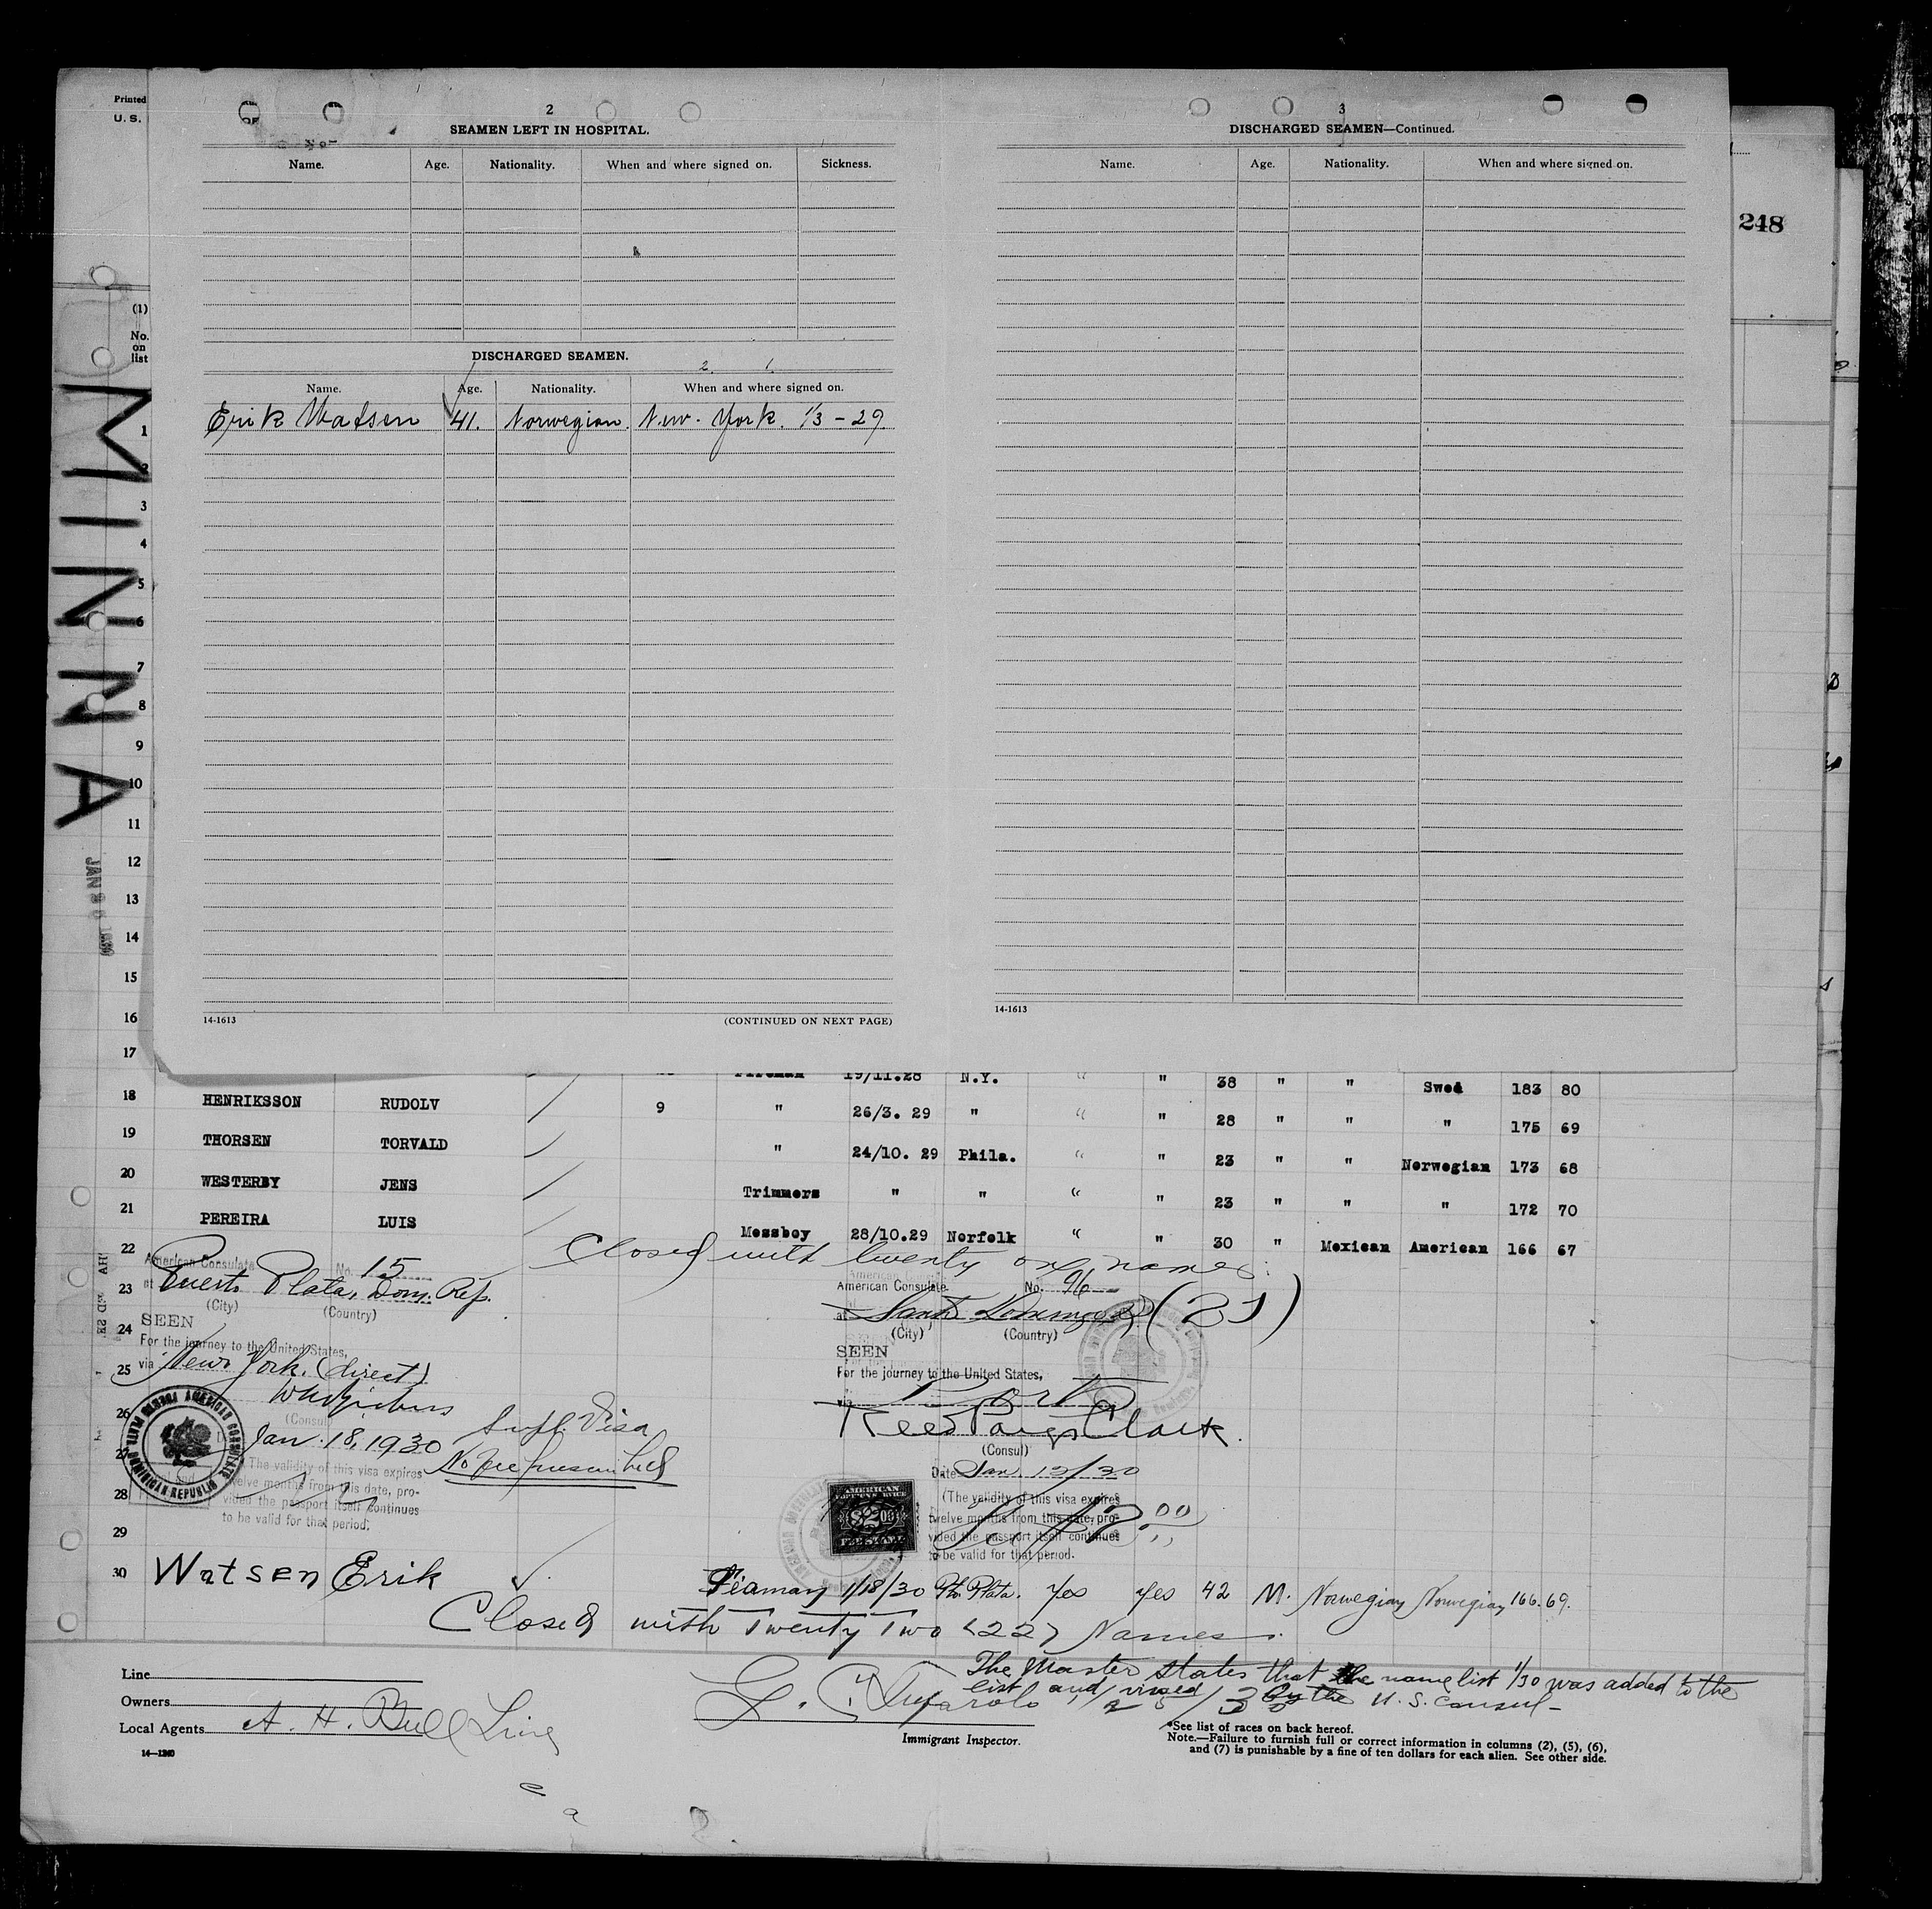 Printed
U. S.
2
SEAMEN LEFT IN HOSPITAL.
Name. Age. Nationality. When and where signed on. Sickness.
DISCHARGED SEAMEN.
2. 1.
Name. Age. Nationality. When and where signed on.
Erik Watsen 41. Norwegian. New. York. 1/3 - 29.
14-1613 (CONTINUED ON NEXT PAGE)
3
DISCHARGED SEAMEN—Continued.
Name. Age. Nationality. When and where signed on.
14-1613
248
MINNA
(1)
No.
on
list
1
2
3
4
5
6
7
8
9
10
11
12
13
14
15
16
17
Fireman 19/11.28 N.Y. " " 38 " " Swed 183 80
18 HENRIKSSON RUDOLV 9 " 26/3. 29 " " " 28 " " " 175 69
19 THORSEN TORVALD " 24/10. 29 Phila. " " 23 " " Norwegian 173 68
20 WESTERBY JENS Trimmers " " " " 23 " " " 172 70
21 PEREIRA LUIS Messboy 28/10.29 Norfolk " " 30 " Mexican American 166 67
22
Closed with twenty one names.
(21)
American Consulate No. 15
23 at Puerto Plata, Dom. Rep.
(City) (Country)
24 SEEN
For the journey to the United States,
25 via New York. (direct)
26
(Consul)
27 Jan. 18, 1930
Suppl. Visa
No fee prescribed
The validity of this visa expires
twelve months from this date, pro-
28 vided the passport itself continues
to be valid for that period.
AMERICAN CONSULATE
PUERTO PLATA
DOMINICAN REPUBLIC
American Consulate No. 96
at Santo Domingo
(City) (Country)
SEEN
For the journey to the United States,
via
Reed Paige Clark.
(Consul)
Date Jan. 13/30
(The validity of this visa expires
twelve months from this date, pro-
vided the passport itself continues
to be valid for that period.
AMERICAN
$2.00
FEE STAMP
29
30 Watsen Erik Seaman 1/18/30 Pto. Plata. Yes Yes 42 M. Norwegian Norwegian 166. 69.
Closed with Twenty Two (22) Names.
Line
Owners
Local Agents A. H. Bull Line
14—1240
The Master states that the name list 1/30 was added to the
list and visaed by the U. S. Consul -
Immigrant Inspector.
*See list of races on back hereof.
Note.—Failure to furnish full or correct information in columns (2), (5), (6),
and (7) is punishable by a fine of ten dollars for each alien. See other side.